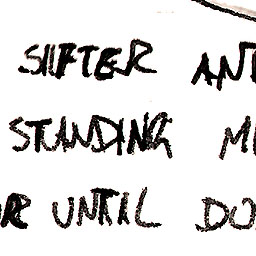 SIFTER AND
STANDING
OR UNTIL